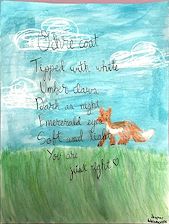 coat
Tipped with white
Umber claws
Dark as night
Emererald eyes
Soft and light
You are
just right ♡